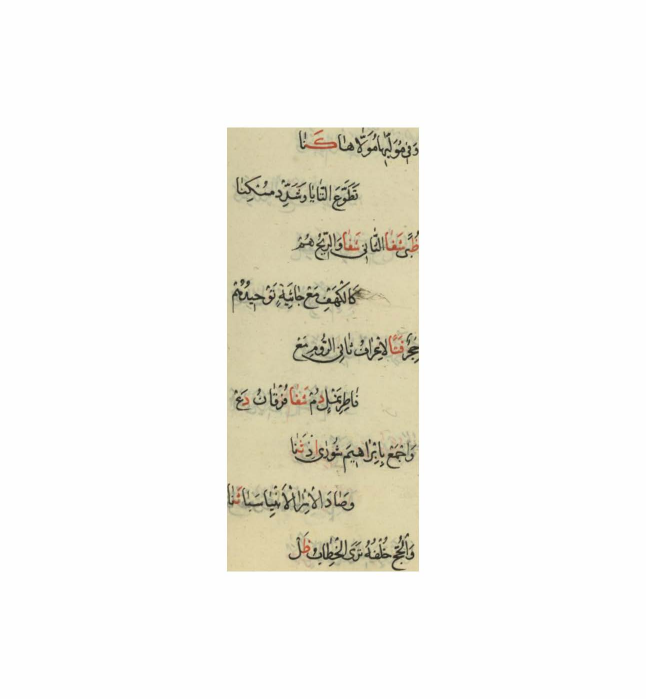 وفي مُوَلِّيها مُوَلّاها كنا
تَطَوَّعَ التايا وشَدِّد مسكنا
ظُبًى شفا الثاني شفا والريح هُمْ
كالكهف مع جاثية توحيدهم
حِجْرٌ فتًا لاعراف ثاني الروم مع
فاطر نمل دُمْ شفا فرقان دَعْ
واجمع بابراهيم شورى اذ ثنا
وصاد الاسرا الانبيا سبا ثنا
والحج خلفه ترى الخطاب ظل